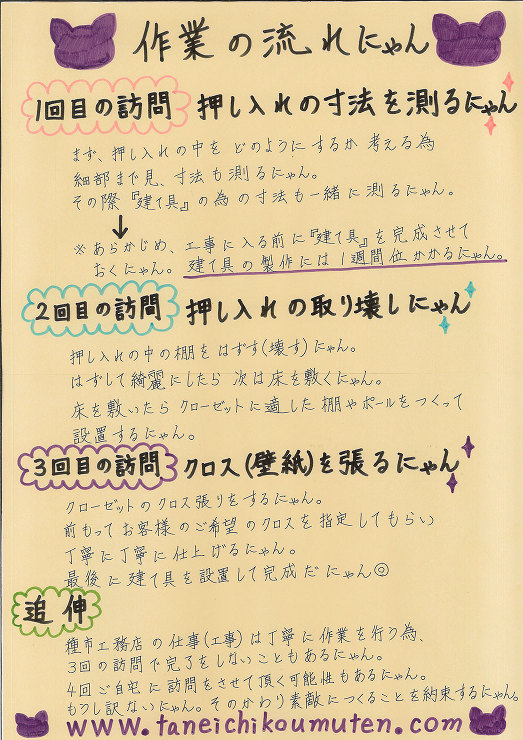 作業の流れにゃん
1回目の訪問 押し入れの寸法を測るにゃん
まず、押し入れの中をどのようにするか考える為
細部まで見、寸法も測るにゃん。
その際『建て具』の為の寸法も一緒に測るにゃん。
↓
※あらかじめ、工事に入る前に『建て具』を完成させて
おくにゃん。建て具の製作には1週間位かかるにゃん。
2回目の訪問 押し入れの取り壊しにゃん
押し入れの中の棚をはずす(壊す)にゃん。
はずして綺麗にしたら次は床を敷くにゃん。
床を敷いたらクローゼットに適した棚やポールをつくって
設置するにゃん。
3回目の訪問 クロス(壁紙)を張るにゃん
クローゼットのクロス張りをするにゃん。
前もってお客様のご希望のクロスを指定してもらい
丁寧に丁寧に仕上げるにゃん。
最後に建て具を設置して完成だにゃん◎
追伸
種市工務店の仕事(工事)は丁寧に作業を行う為、
3回の訪問で完了をしないこともあるにゃん。
4回ご自宅に訪問をさせて頂く可能性もあるにゃん。
もうし訳ないにゃん。そのかわり素敵につくることを約束するにゃん。
www.taneichikoumuten.com